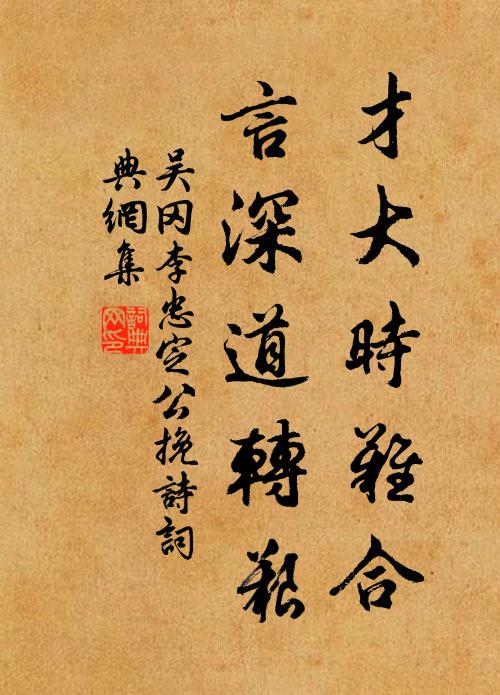 才大時難合
言深道轉艱
吴冈李忠定公挽詩詞
典網集
詞典
网印